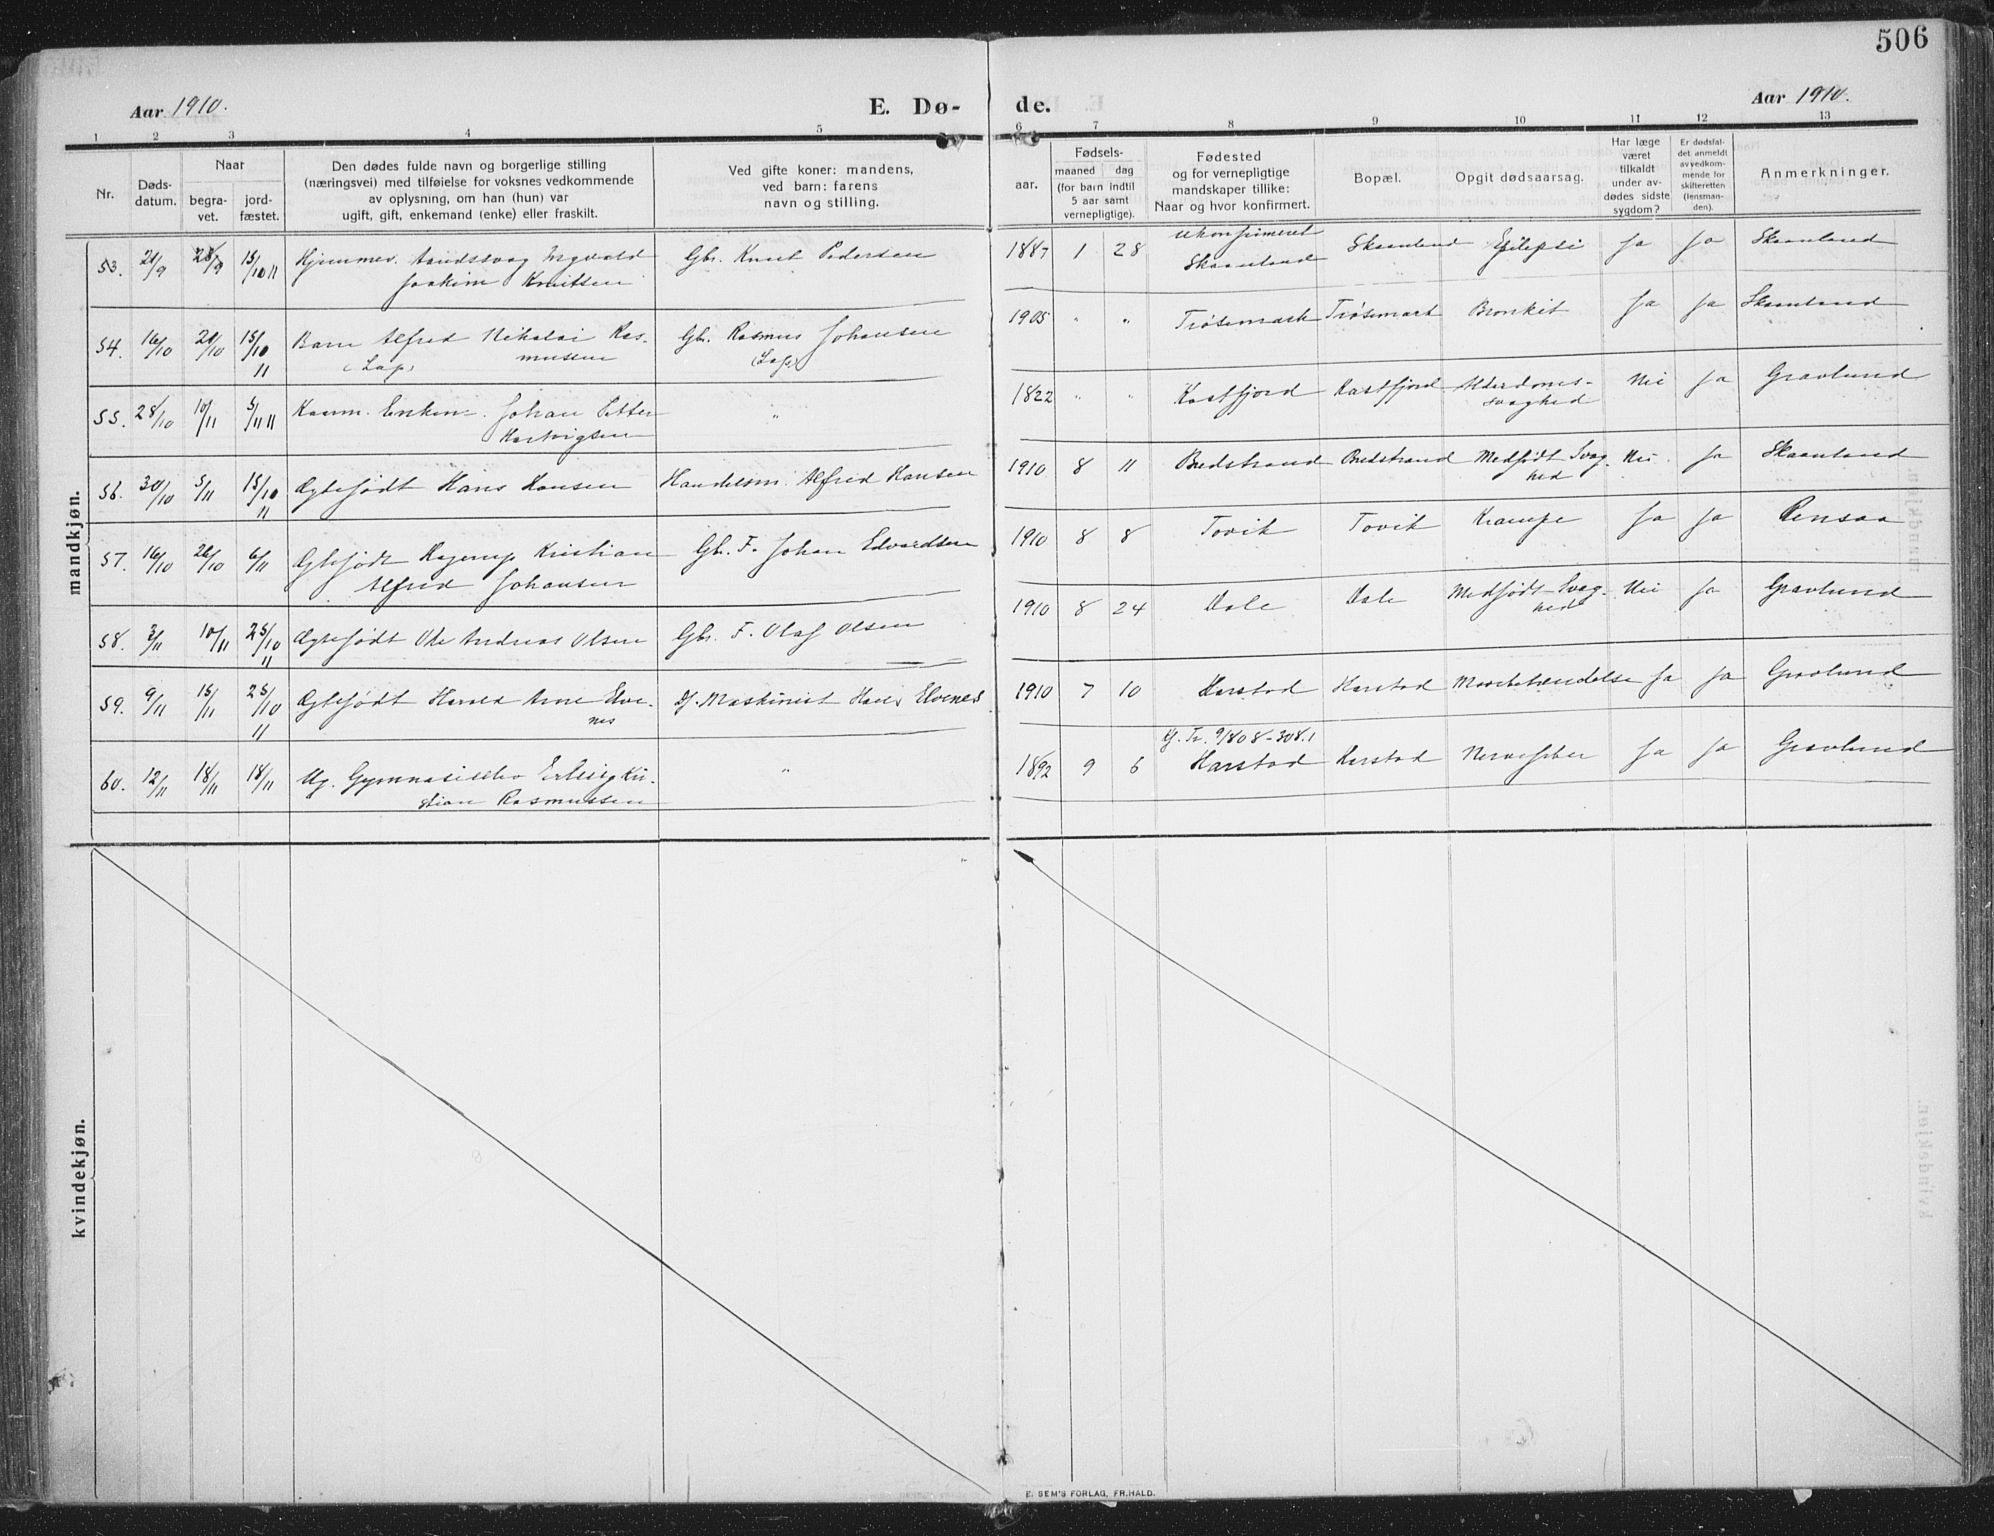 506
Aar 1910.
E. Dø-
de.
Aar 1910.
1 2 3 4 5 6 7 8 9 10 11 12 13
Nr.
Døds-
datum.
Naar
begra-
vet.
jord-
fæstet.
Den dødes fulde navn og borgerlige stilling
(næringsvei) med tilføielse for voksnes vedkommende
av oplysning, om han (hun) var
ugift, gift, enkemand (enke) eller fraskilt.
Ved gifte koner: mandens,
ved barn: farens
navn og stilling.
Fødsels-
aar.
maaned dag
(for barn indtil
5 aar samt
vernepligtige).
Fødested
og for vernepligtige
mandskaper tillike:
Naar og hvor konfirmert.
Bopæl.
Opgit dødsaarsag.
Har læge
været
tilkaldt
under av-
dødes sidste
sygdom?
Er dødsfal-
det anmeldt
av vedkom-
mende for
skifteretten
(lensman-
den).
Anmerkninger.
mandkjøn.
53. 21/9 28/9 15/10 11 Hjemmev. Aandssvag Ingvald
Joakim Knutsen
Gbr. Knut Pedersen
1887 1 28 ukonfirmeret
Skaanland Skaanland Epilepsi Ja Ja Skaanland
54. 16/10 20/10 15/10 11 Barn Alfred Nikolai Ras-
(Lap) mussen
Gbr. Rasmus Johansen
(Lap)
1905 " " Trøsemark Trøsemark Bronkit Ja Ja Skaanland
55. 28/10 10/11 5/11 11 Kaarm. Enkem. Johan Petter
Hartvigsen
"
1822 " " Kastfjord Kastfjord Alderdoms-
svaghed Nei Ja Gravlund
56. 30/10 5/11 15/10 11 Ægtefødt Hans Hansen Handelsm. Alfred Hansen
1910 8 11 Bredstrand Bredstrand Medfødt Svag-
hed Nei Ja Skaanland
57. 16/10 26/10 6/11 Ægtefødt Hagerup Kristian
Alfred Johansen
Gbr. F. Johan Edvardsen
1910 8 8 Tovik Tovik Krampe Ja Ja Rensaa
58. 3/11 10/11 25/10 11 Ægtefødt Ole Andreas Olsen Gbr. F. Olaf Olsen
1910 8 24 Dale Dale Medfødt Svag-
hed Nei Ja Gravlund
59. 9/11 15/11 25/10 11 Ægtefødt Harald Arne Elve-
nes
Maskinist Hans Elvenes
1910 7 10 Harstad Harstad Ja Ja Gravlund
60. 12/11 18/11 18/11 Ug. Gymnasieelev Erling Kri-
stian Rasmussen
"
1892 9 6 Harstad Harstad Nervefeber Ja Ja Gravlund
kvindekjøn.
E. SEM'S FORLAG, FR.HALD.